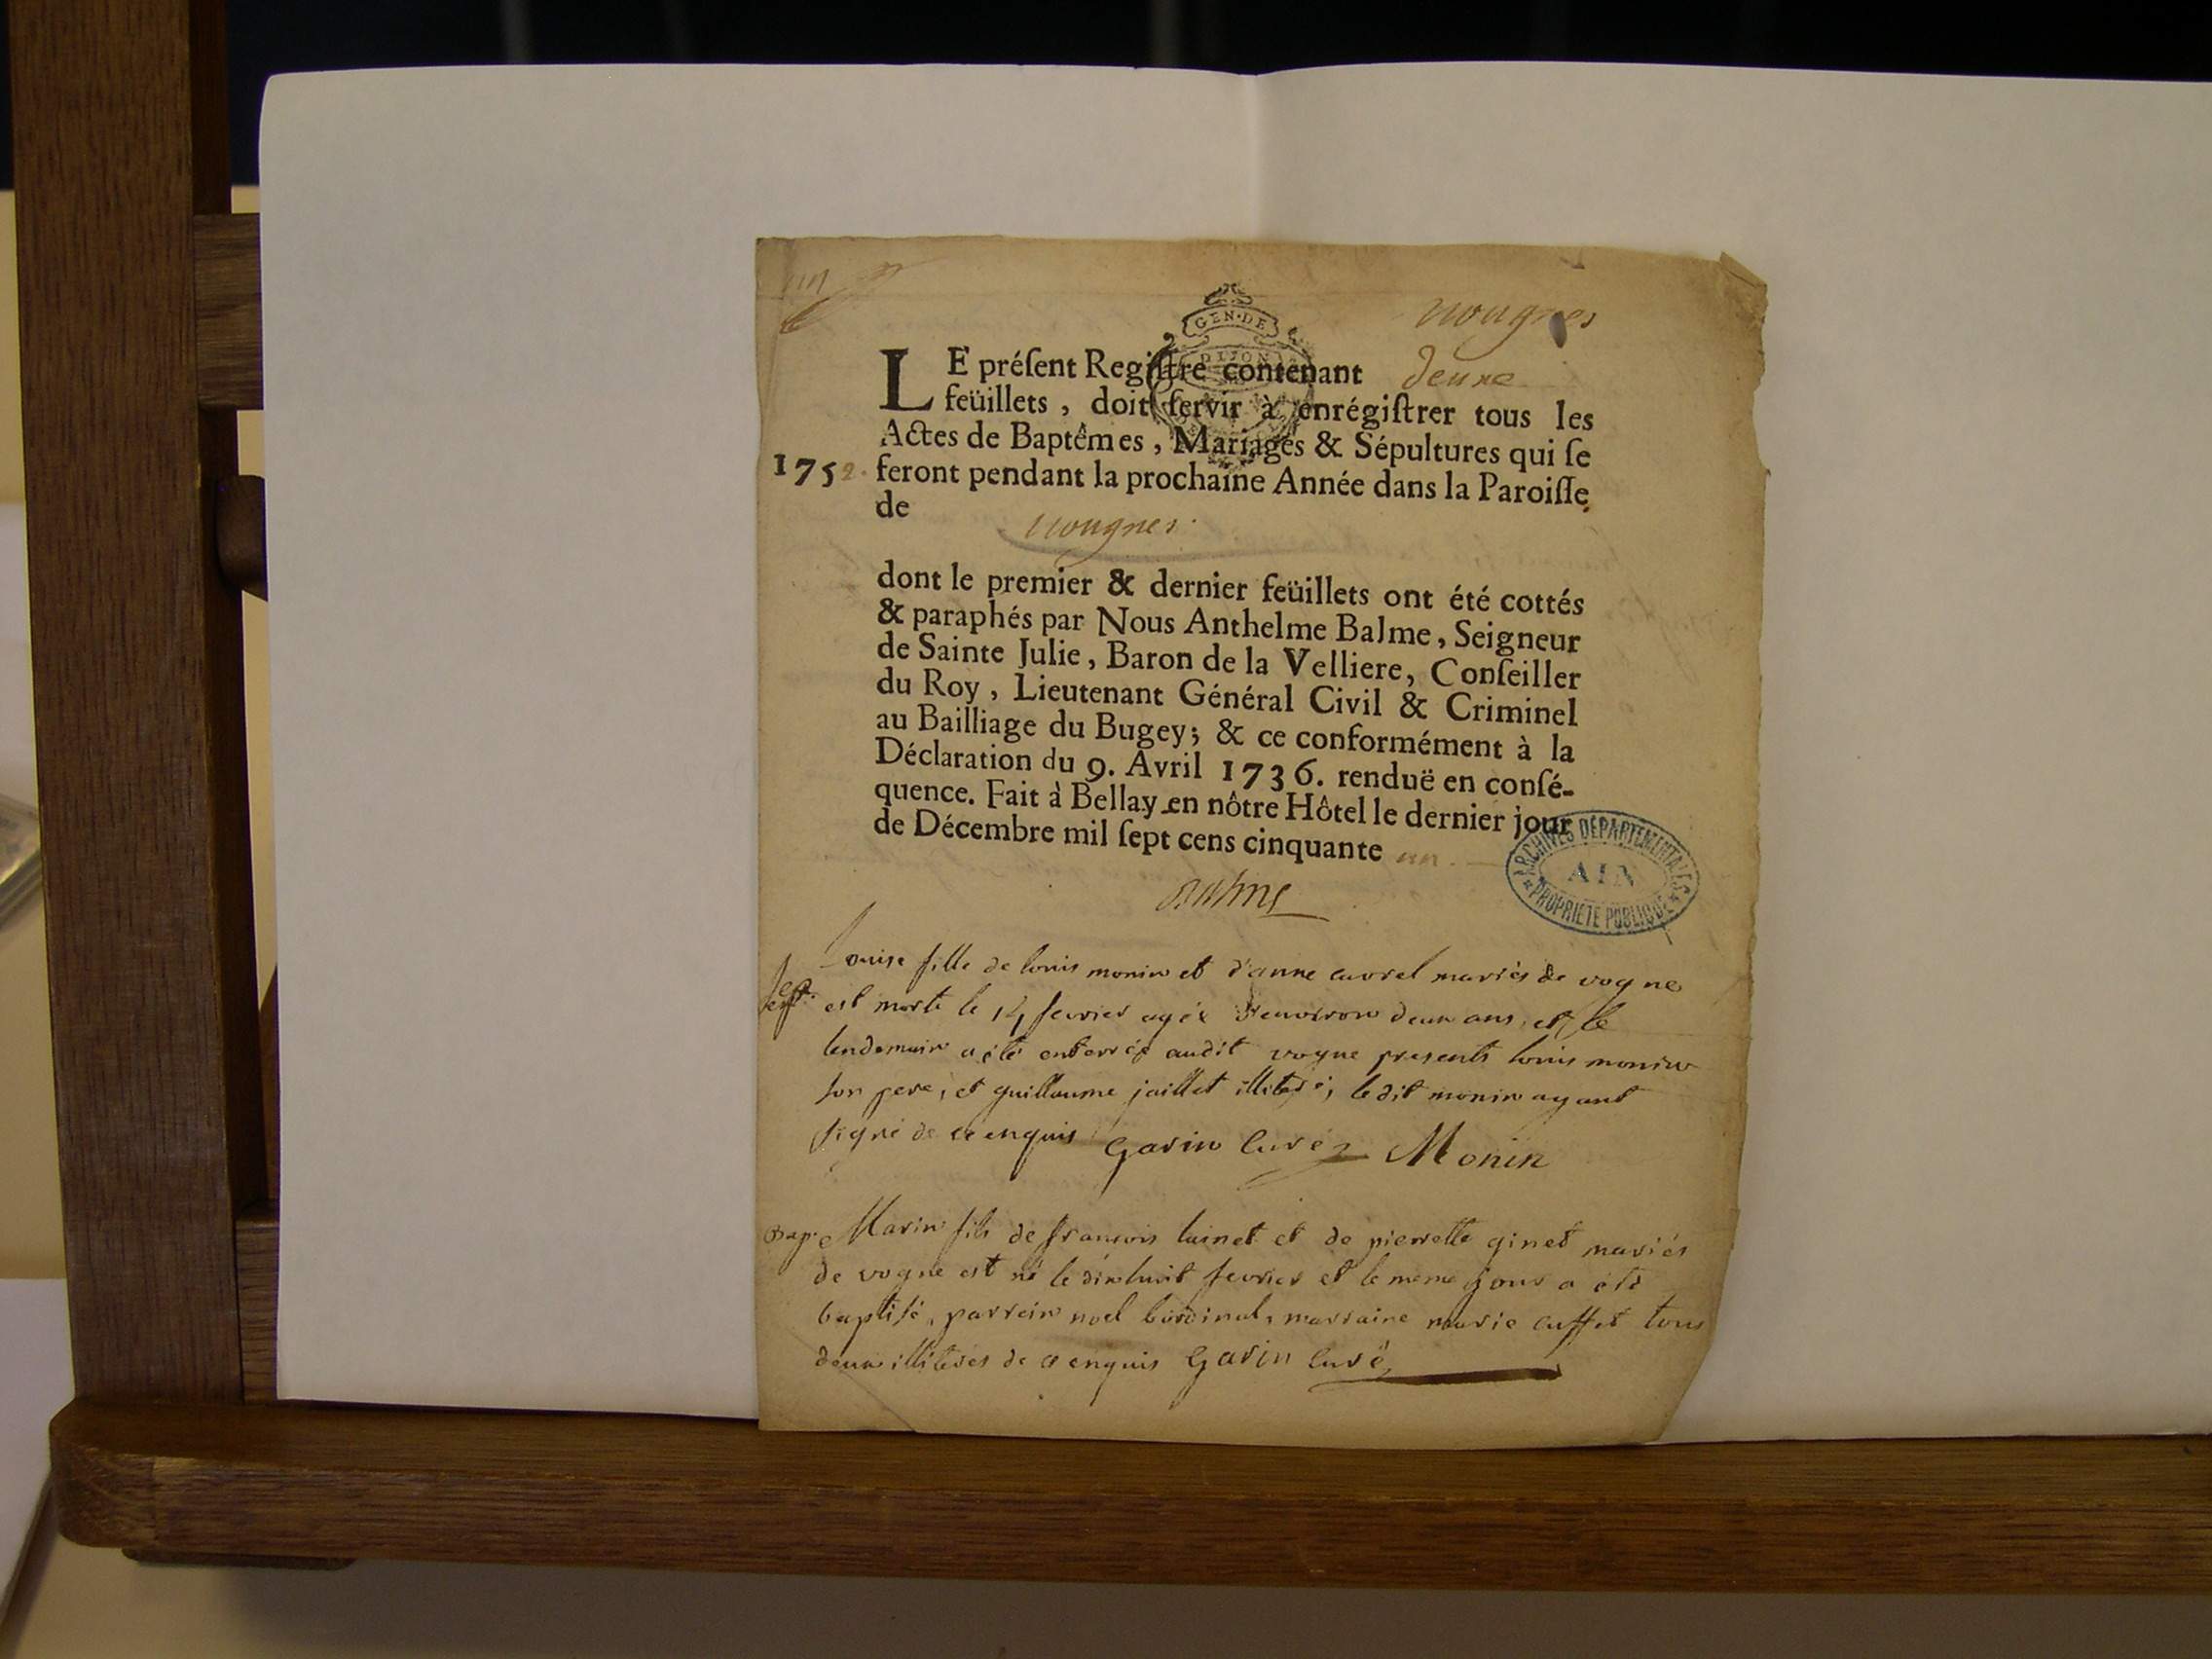 un
GEN·DE
DIJON
vougnes
LE préſent Regiſtre contenant deux
feüillets, doit ſervir à enrégiſtrer tous les
Actes de Baptêmes, Mariages & Sépultures qui ſe
1752. feront pendant la prochaine Année dans la Paroiſſe
de
vougnes.
dont le premier & dernier feüillets ont été cottés
& paraphés par Nous Anthelme Balme, Seigneur
de Sainte Julie, Baron de la Velliere, Conſeiller
du Roy, Lieutenant Général Civil & Criminel
au Bailliage du Bugey; & ce conformément à la
Déclaration du 9. Avril 1736. renduë en conſé-
quence. Fait à Bellay en nôtre Hôtel le dernier jour
de Décembre mil ſept cens cinquante un.
ARCHIVES DÉPARTEMENTALES
AIN
PROPRIÉTÉ PUBLIQUE
Balme
Louise fille de louis monin et d'anne mariés de vogne
est morte le 14 fevrier agée d'environ deux ans, et le
lendemain a été enterrée audit vogne presents louis monin
son pere, et guillaume jaillet illiteré, ledit monin ayant
signé de ce enquis Garin Curé Monin
Bap. Marin fils de francois luinet et de pierrette ginet mariés
de vogne est né le dixhuit fevrier et le meme jour a été
baptisé, parrein noel marraine marie cuffet tous
deux illiteres de ce enquis Garin Curé